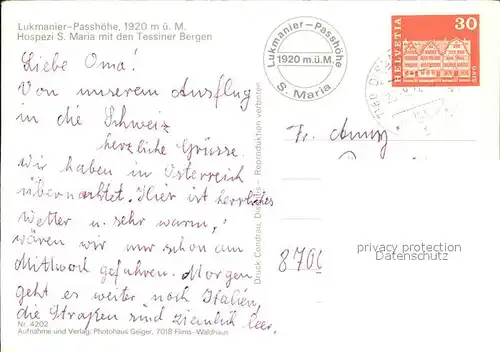 Lukmanier-Passhöhe, 1920 m ü. M.
Hospezi S. Maria mit den Tessiner Bergen
Liebe Oma!
Von unserem Ausflug
in die Schweiz
herzliche Grüsse.
Wir haben in Österreich
übernachtet. Hier ist herrliches
Wetter u. sehr warm,
wären wir nur schon am
Mittwoch gefahren. Morgen
geht es weiter nach Italien,
die Straßen sind ziemlich leer.
Nr. 4202
Aufnahme und Verlag: Photohaus Geiger, 7018 Flims-Waldhaus
Druck Condrau, Disentis – Reproduktion verboten
Lukmanier-Passhöhe
1920 m.ü.M.
S. Maria
HELVETIA
30
GAIS
Fr. Anny
8700
privacy protection
Datenschutz